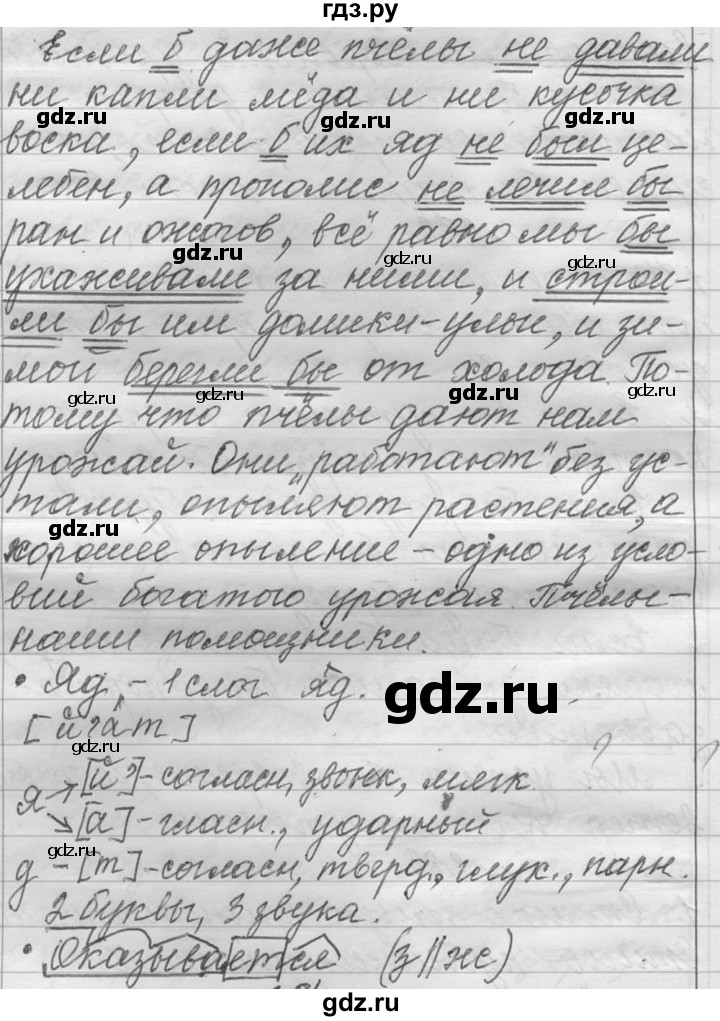 гдз.ру
Если б даже пчёлы не давали
ни капли мёда и ни кусочка
воска, если б их яд не был це-
лебен, а прополис не лечил бы
ран и ожогов, всё равно мы бы
ухаживали за ними, и строи-
ли бы им домики-ульи, и зи-
мой берегли бы от холода. По-
тому что пчёлы дают нам
урожай. Они „работают“ без ус-
тали, опыляют растения, а
хорошее опыление - одно из усло-
вий богатого урожая. Пчёлы-
наши помощники.
• Яд, - 1 слог яд.
[й'а́т]
я → [й']-согласн, звонк, мягк.
↘ [а]-гласн., ударный
д - [т]-согласн, тверд., глух., парн.
2 буквы, 3 звука.
• Оказывается (з//ж)
gdz.ru